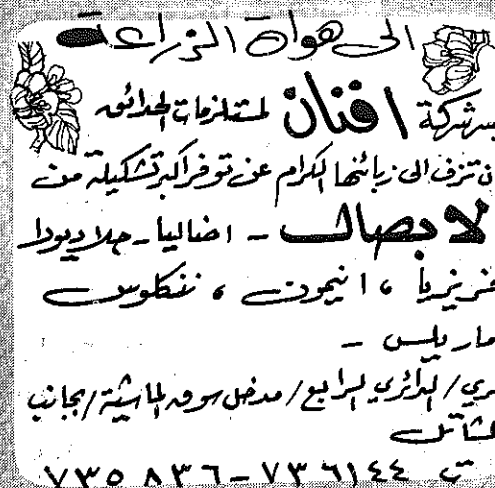 الى هواة الزراعة
شركة افنان لمستلزمات الحدائق
ان تزف الى زبائنها الكرام عن توفر اكبر تشكيلة من
لابصال - اضاليا - جلاديودا
فريزيا ، انيمون ، ننكلوس
مارىلس -
ري / الدائري الرابع / مدخل سوق الماشية / بجانب
لمشاتل
ت ٧٣٦١٤٤ - ٧٣٥٨٣٦